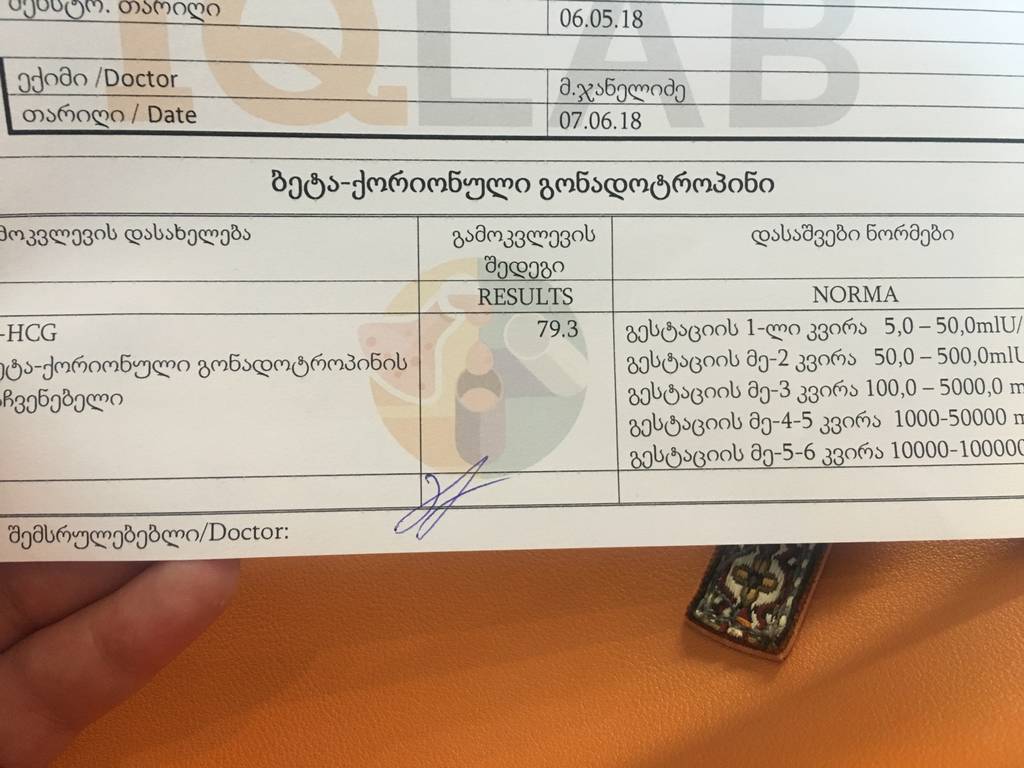 მენსტრ. თარიღი 06.05.18
IQLAB
ექიმი /Doctor მ.ჯანელიძე
თარიღი / Date 07.06.18
ბეტა-ქორიონული გონადოტროპინი
მოკვლევის დასახელება გამოკვლევის შედეგი დასაშვები ნორმები
RESULTS NORMA
-HCG 79.3 გესტაციის 1-ლი კვირა 5,0 – 50,0mlU/
ეტა-ქორიონული გონადოტროპინის გესტაციის მე-2 კვირა 50,0 – 500,0mlU
აჩვენებელი გესტაციის მე-3 კვირა 100,0 – 5000,0 m
გესტაციის მე-4-5 კვირა 1000-50000 m
გესტაციის მე-5-6 კვირა 10000-100000
შემსრულებებლი/Doctor: